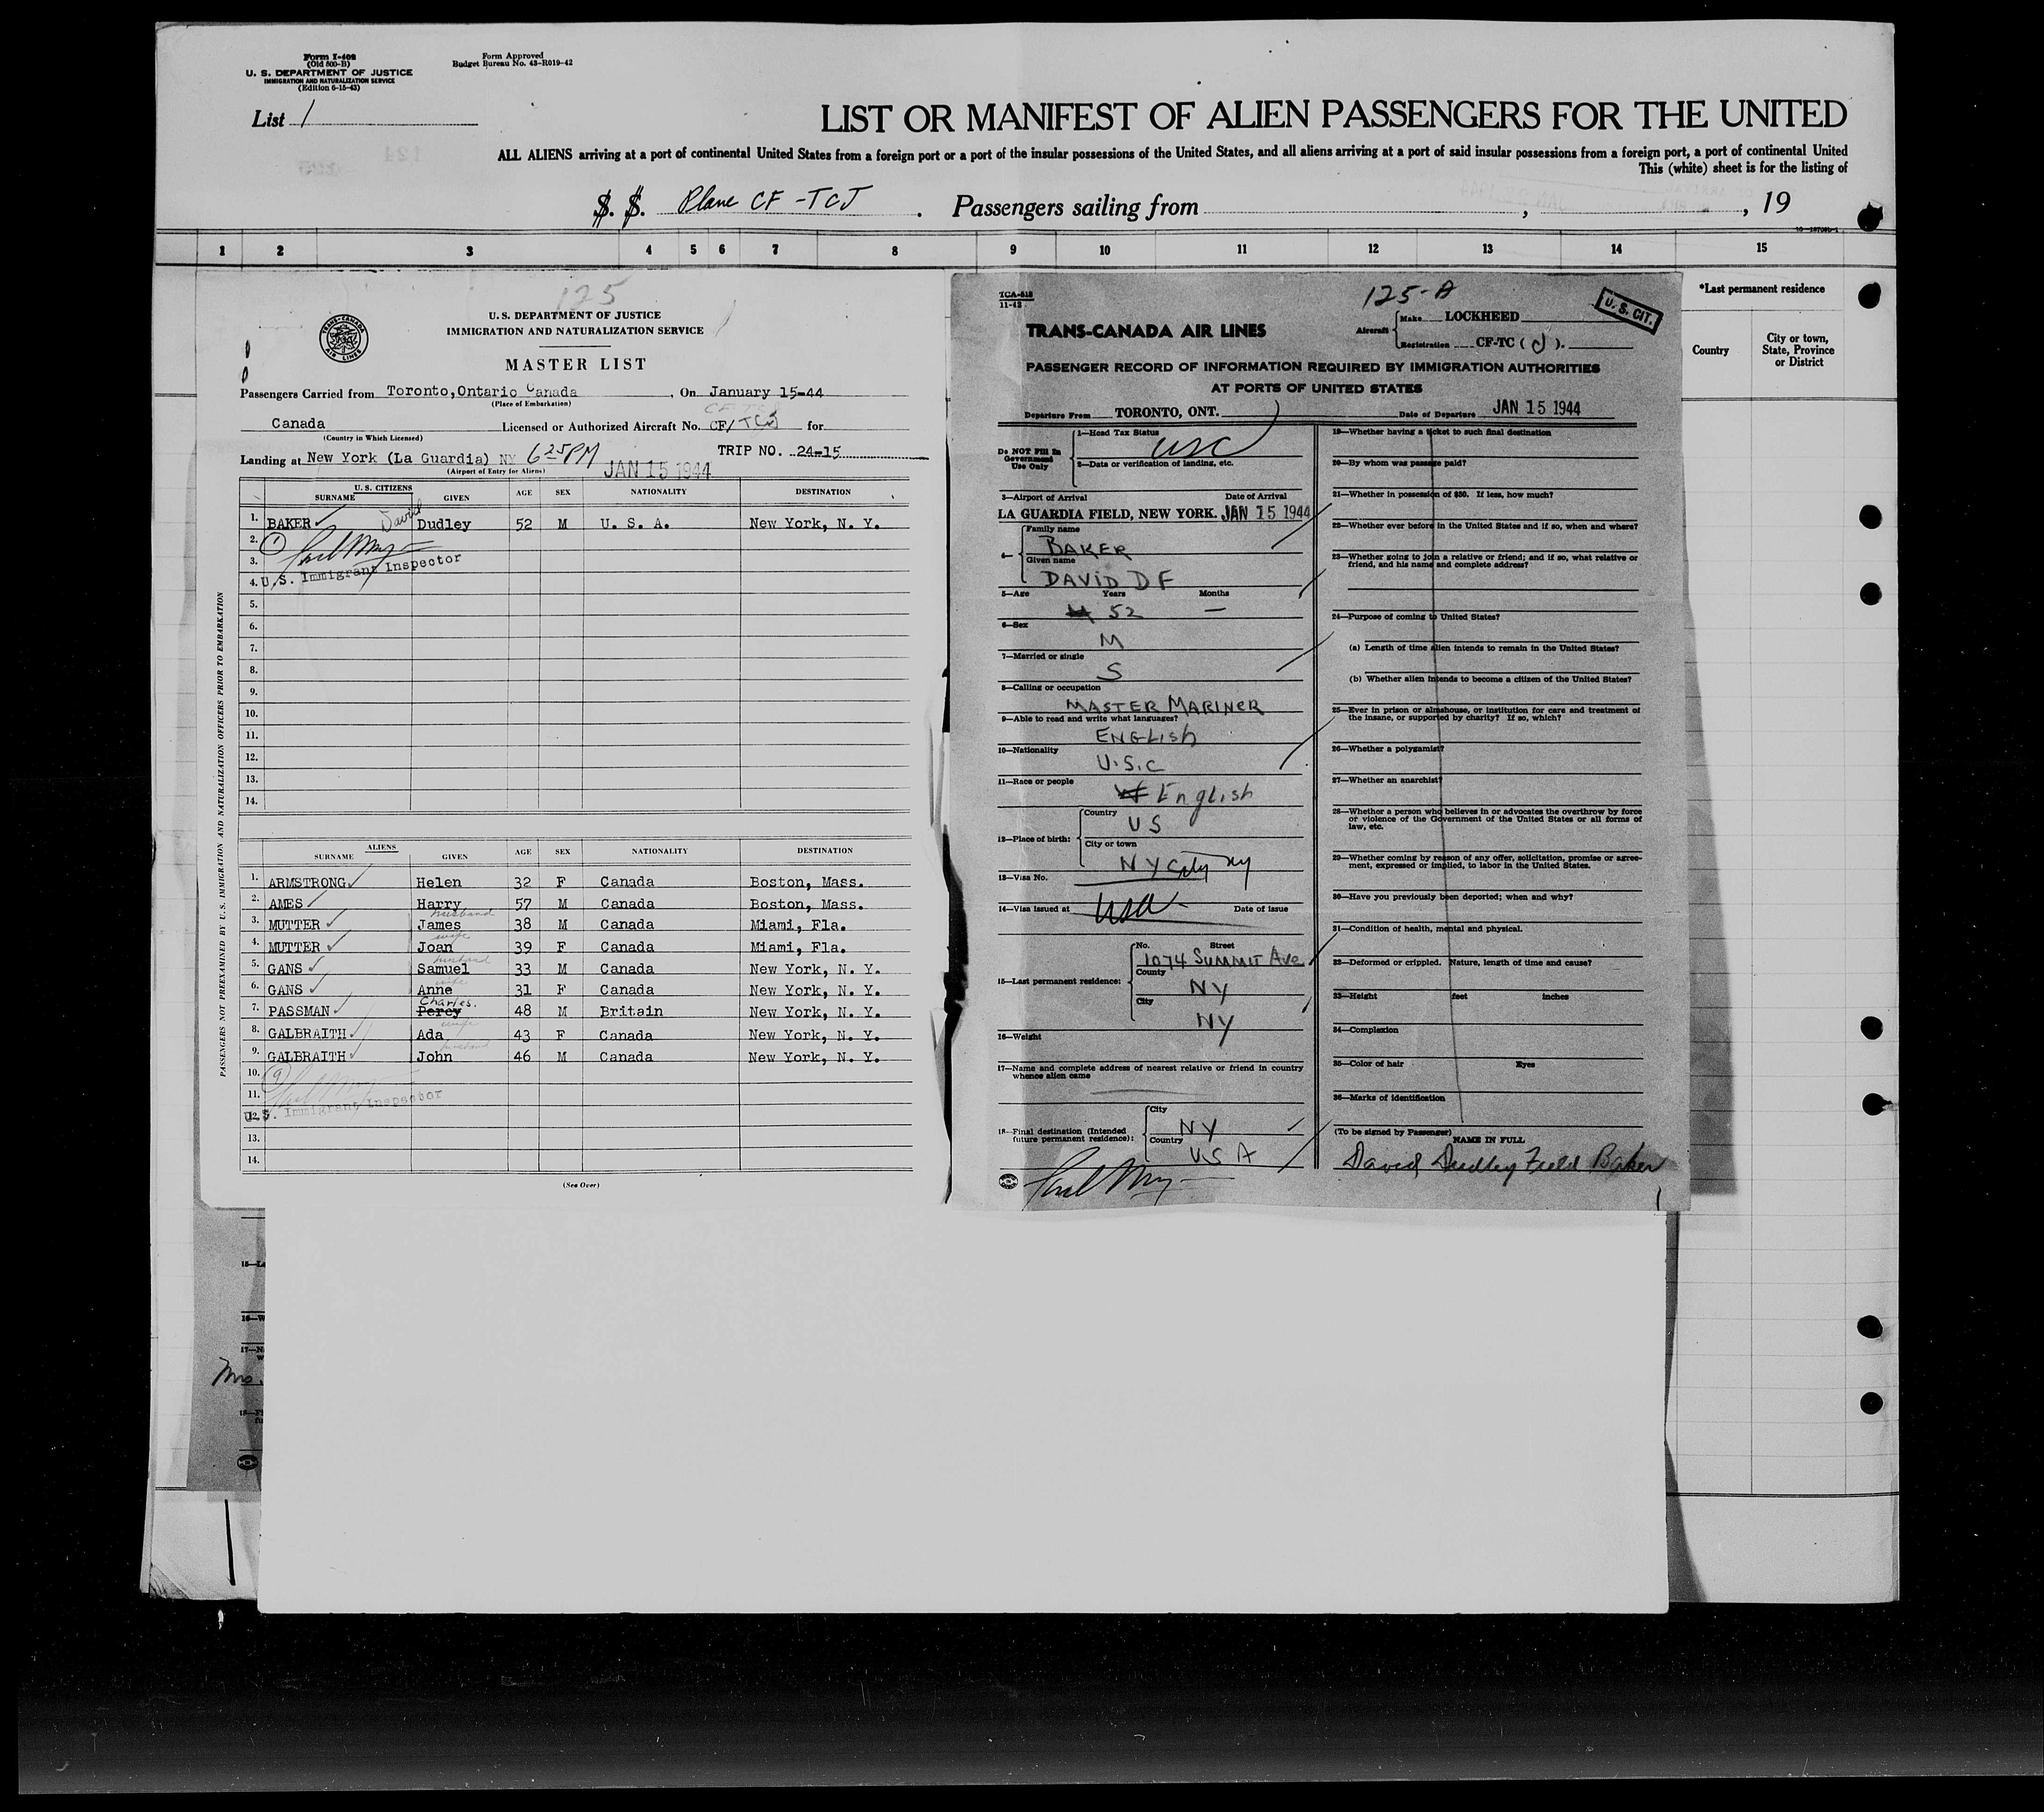 Form I-408
(Old 500-B)
U. S. DEPARTMENT OF JUSTICE
IMMIGRATION AND NATURALIZATION SERVICE
(Edition 6-15-43)
Form Approved
Budget Bureau No. 43-R019-42
List 1
LIST OR MANIFEST OF ALIEN PASSENGERS FOR THE UNITED
ALL ALIENS arriving at a port of continental United States from a foreign port or a port of the insular possessions of the United States, and all aliens arriving at a port of said insular possessions from a foreign port, a port of continental United
This (white) sheet is for the listing of
S. S. Plane CF-TCJ. Passengers sailing from , , 19
1 2 3 4 5 6 7 8 9 10 11 12 13 14 15
*Last permanent residence
Country
City or town, State, Province or District
125
TRANS-CANADA AIR LINES
U. S. DEPARTMENT OF JUSTICE
IMMIGRATION AND NATURALIZATION SERVICE
MASTER LIST
Passengers Carried from Toronto,Ontario Canada, On January 15-44
(Place of Embarkation)
Canada Licensed or Authorized Aircraft No. CF/TCJ for
(Country in Which Licensed)
Landing at New York (La Guardia) NY 6 25 PM TRIP NO. 24-15
(Airport of Entry for Aliens)
JAN 15 1944
U. S. CITIZENS
SURNAME GIVEN AGE SEX NATIONALITY DESTINATION
1. BAKER David Dudley 52 M U. S. A. New York, N. Y.
2. 1
3.
4. U.S. Immigrant Inspector
5.
6.
7.
8.
9.
10.
11.
12.
13.
14.
ALIENS
SURNAME GIVEN AGE SEX NATIONALITY DESTINATION
1. ARMSTRONG Helen 32 F Canada Boston, Mass.
2. AMES Harry 57 M Canada Boston, Mass.
husband
3. MUTTER James 38 M Canada Miami, Fla.
wife
4. MUTTER Joan 39 F Canada Miami, Fla.
husband
5. GANS Samuel 33 M Canada New York, N. Y.
wife
6. GANS Anne 31 F Canada New York, N. Y.
Charles.
7. PASSMAN Percy 48 M Britain New York, N. Y.
wife
8. GALBRAITH Ada 43 F Canada New York, N. Y.
husband
9. GALBRAITH John 46 M Canada New York, N. Y.
10. 9
11.
12. U.S. Immigrant Inspector
13.
14.
(See Over)
PASSENGERS NOT PREEXAMINED BY U.S. IMMIGRATION AND NATURALIZATION OFFICERS PRIOR TO EMBARKATION
TCA-518
11-43
125-A
U. S. CIT.
TRANS-CANADA AIR LINES
Aircraft
Make LOCKHEED
Registration CF-TC ( J ).
PASSENGER RECORD OF INFORMATION REQUIRED BY IMMIGRATION AUTHORITIES
AT PORTS OF UNITED STATES
Departure From TORONTO, ONT. Date of Departure JAN 15 1944
Do NOT Fill In
Government
Use Only
1—Head Tax Status
USC
2—Data or verification of landing, etc.
3—Airport of Arrival Date of Arrival
LA GUARDIA FIELD, NEW YORK. JAN 15 1944
4—
Family name
BAKER
Given name
DAVID D F
5—Age Years Months
52 —
6—Sex
M
7—Married or single
S
8—Calling or occupation
MASTER MARINER
9—Able to read and write what languages?
ENGLISH
10—Nationality
U.S.C
11—Race or people
W English
12—Place of birth:
Country
US
City or town
N Y City NY
13—Visa No.
14—Visa issued at Date of issue
USA
15—Last permanent residence:
No. Street
1074 SUMMIT AVE
County
NY
City
NY
16—Weight
17—Name and complete address of nearest relative or friend in country
whence alien came
18—Final destination (Intended
future permanent residence):
City
NY
Country
USA
19—Whether having a ticket to such final destination
20—By whom was passage paid?
21—Whether in possession of $50. If less, how much?
22—Whether ever before in the United States and if so, when and where?
23—Whether going to join a relative or friend; and if so, what relative or
friend, and his name and complete address?
24—Purpose of coming to United States?
(a) Length of time alien intends to remain in the United States?
(b) Whether alien intends to become a citizen of the United States?
25—Ever in prison or almshouse, or institution for care and treatment of
the insane, or supported by charity? If so, which?
26—Whether a polygamist?
27—Whether an anarchist?
28—Whether a person who believes in or advocates the overthrow by force
or violence of the Government of the United States or all forms of
law, etc.
29—Whether coming by reason of any offer, solicitation, promise or agree-
ment, expressed or implied, to labor in the United States.
30—Have you previously been deported; when and why?
31—Condition of health, mental and physical.
32—Deformed or crippled. Nature, length of time and cause?
33—Height feet inches
34—Complexion
35—Color of hair Eyes
36—Marks of identification
(To be signed by Passenger)
NAME IN FULL
David Dudley Field Baker
15—La
16—W
17—N
w
Mrs.
18—Fi
fu